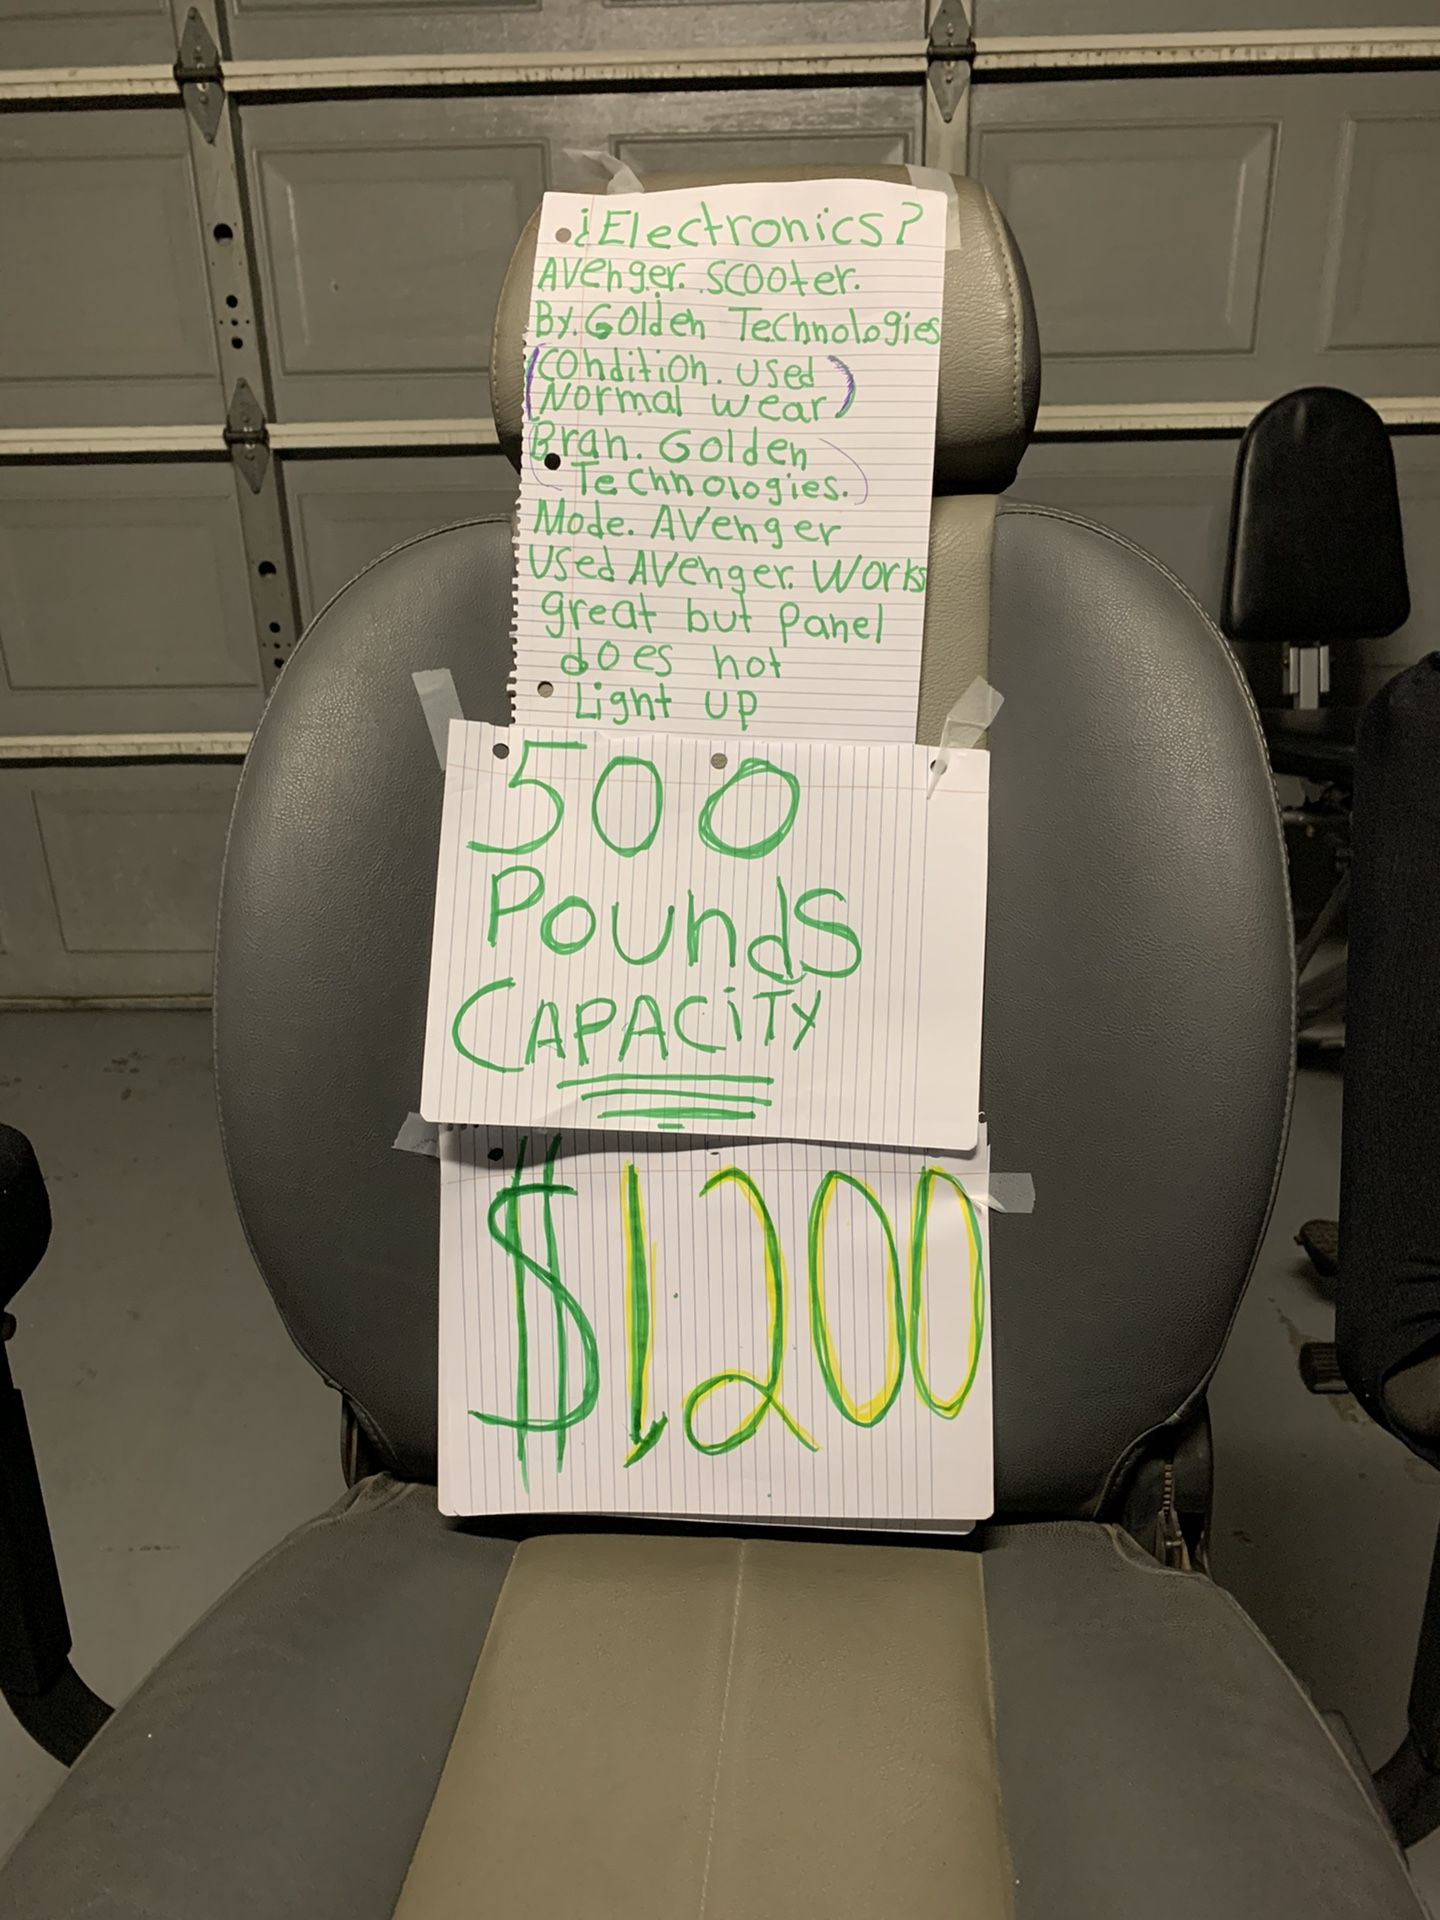 ¿Electronics?
Avenger. Scooter.
By. Golden Technologies
(Condition. Used
Normal wear)
(Bran. Golden
Technologies.)
Mode. Avenger
Used Avenger. Works
great but panel
does not
Light up
500
Pounds
CAPACiTY
$1,200